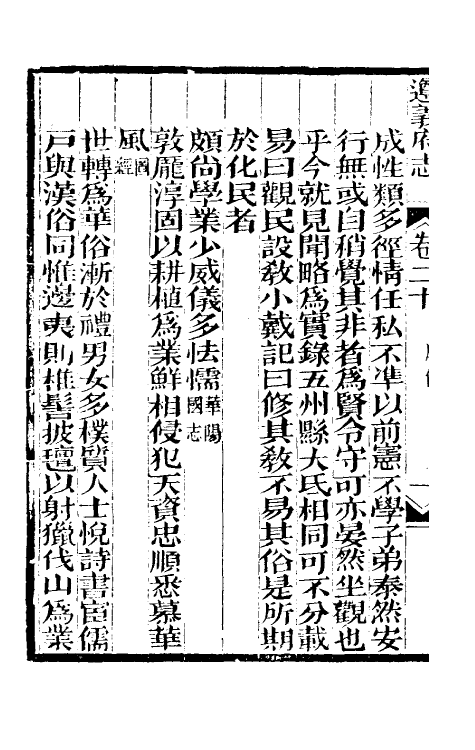 遵義府志 卷二十
成性類多徑情任私不準以前憲不學子弟泰然安
行無或自稍覺其非者爲賢令守可亦晏然坐觀也
乎今就見聞略爲實錄五州縣大氐相同可不分載
易曰觀民設敎小戴記曰修其敎不易其俗是所期
於化民者
頗尚學業少威儀多怯懦華陽國志
敦龎淳固以耕植爲業鮮相侵犯天資忠順悉慕華
風圖經
世轉爲華俗漸於禮男女多樸質人士悅詩書宦儒
戸與漢俗同惟邊夷則椎髻披氊以射獵伐山爲業